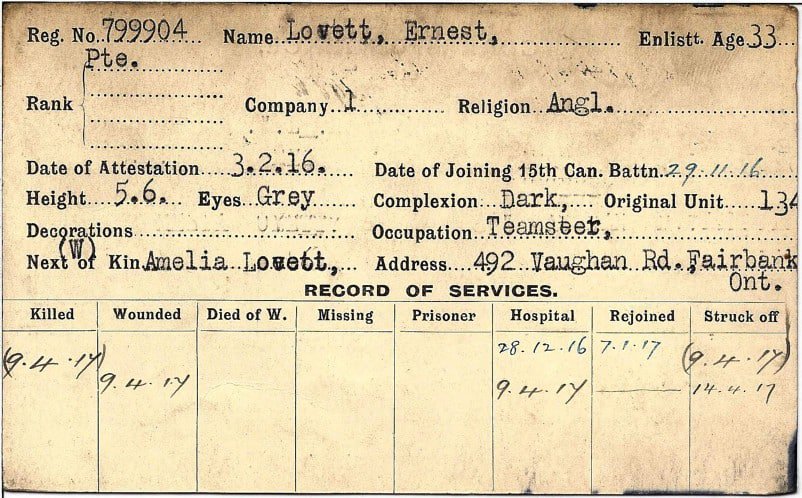 Reg. No. 799904 Name Lovett, Ernest, Enlistt. Age 33
Pte.
Rank Company 1 Religion Angl.
Date of Attestation 3.2.16. Date of Joining 15th Can. Battn. 29.11.16
Height 5.6. Eyes Grey Complexion Dark, Original Unit 134
Decorations Occupation Teamster,
(W)
Next of Kin Amelia Lovett, Address 492 Vaughan Rd., Fairbank
Ont.
RECORD OF SERVICES.
Killed Wounded Died of W. Missing Prisoner Hospital Rejoined Struck off
28.12.16 7.1.17
(9.4.17) (9.4.17)
9.4.17 9.4.17 14.4.17